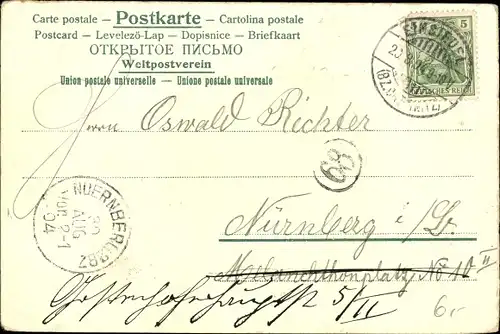 Carte postale – Postkarte – Cartolina postale
Postcard – Levelező-Lap – Dopisnice – Briefkaart
ОТКРЫТОЕ ПИСЬМО
Weltpostverein
Union postale universelle – Unione postale universale
5
REICH
Herrn Oswald Richter
Nürnberg i/B.
Melanchthonplatz No 10 II
5/II
NUERNBERG
30
AUG
Vor. 2-1
04
6.-